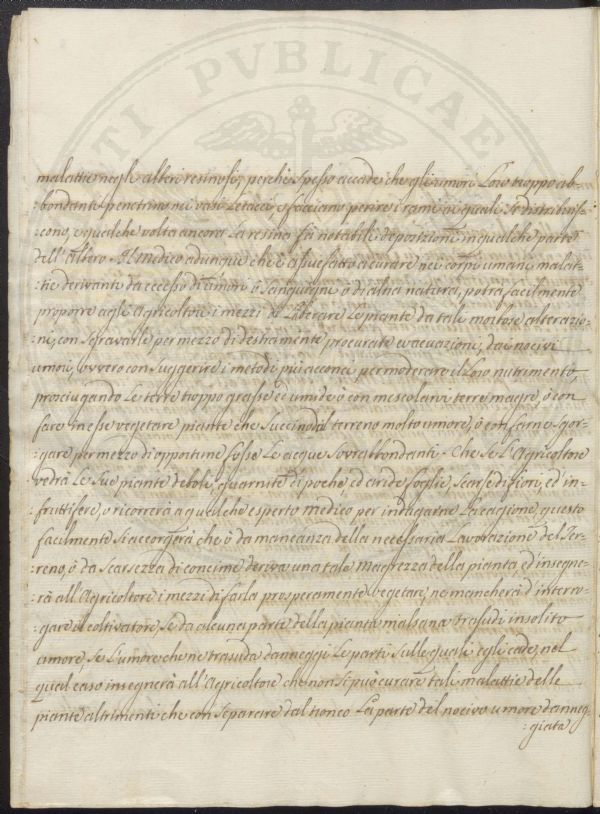 TI PVBLICAE
malattie negli alberi resinosi, perchè spesso accade che gli umori Loro troppo ab-
:bondanti penetrino nei vasi Letacci, e facciano perire i rami ai quali si distribuis-
:cono, e qualche volta ancora La resina fà notabili deposizioni in qualche parte
dell'albero. Il medico adunque che è assuefatto a curare nei corpi umani malat-
:tie derivanti da eccesso di umori ò sanguigni ò di altra natura, potrà facilmente
proporre agli Agricoltori i mezzi di Liberare Le piante da tali morbose alterazio-
:ni, con sgravarle per mezzo di destramente procurate evacuazioni, dai nocivi
umori, ovvero con suggerire i metodi più acconci per moderare il Loro nutrimento,
prosciugando Le terre troppo grasse ed umide ò con mescolarvi terre magre, ò con
fare in esse vegetare piante che succino al terreno molto umore, ò con farne sgor-
:gare per mezzo di opportune fosse Le acque sovrabbondanti. Che se L'Agricoltore
vedrà Le sue piante deboli, guarnite di poche, ed aride foglie, scarse di fiori, ed in-
:fruttifere, e ricorrerà a qualche esperto medico per indagarne La cagione, questo
facilmente si accorgerà che ò da mancanza della necessaria Lavorazione del Ter-
:reno, ò da scarsezza di concime deriva una tale magrezza della pianta, ed insegne-
:rà all'Agricoltore i mezzi di farla prosperamente vegetare, ne mancherà d'interro-
:gare il coltivatore, se da alcuna parte della pianta malsana trasudi insolito
umore, se L'umore che ne trasuda danneggi Le parti sulle quali egli cade, nel
qual caso insegnerà all'Agricoltore che non si può curare tali malattie delle
piante altrimenti che con separare dal tronco La parte del nocivo umore danneg-
:giata